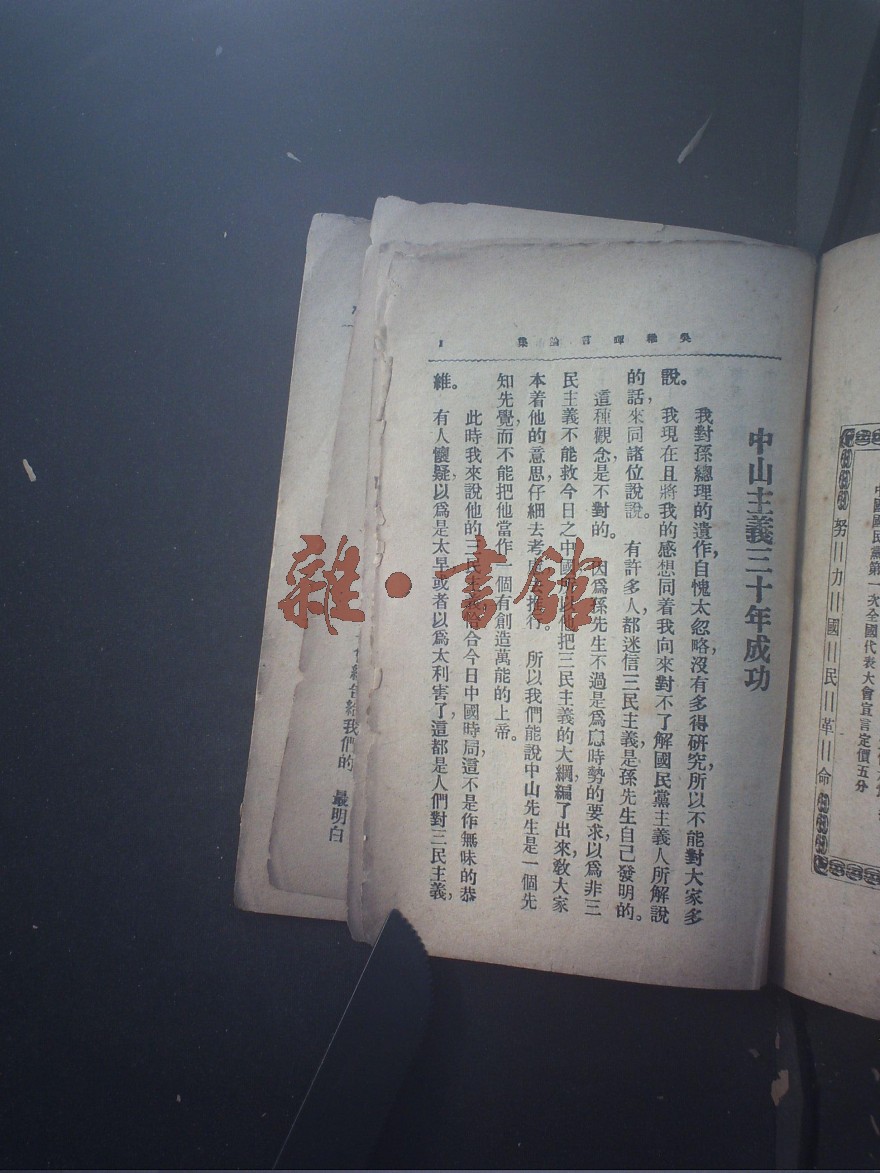 中國國民黨第一次全國代表大會宣言定價五分
努力國民革命
吳稚暉言論集
1
中山主義三十年成功
我對孫總理的遺作,自愧太忽略,沒有多得研究,所以不能對大家多
說。
我現在且將我的感想同着我向來對不了解國民黨主義人所解說
的話,來同諸位說說。有許多人,都迷信三民主義,是孫先生自己發明的。
這種觀念是不對的。因爲孫先生不過是爲應時勢的要求,以爲非三
民主義不能救今日之中國,所以他把三民主義的大綱,編了出來,敎大家
本着他的意思,仔細去考慮去推行。所以我們能說中山先生是一個先
知先覺,而不能把他當作一個有創造萬能的上帝。
此時我來說他的三民主義,恰合今日中國時局,這不是作無味的恭
維。有人懷疑,以爲是太早,或者以爲太利害了,這都是人們對三民主義,
給我們的 最明白
雜·書館